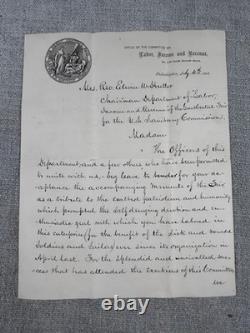 OFFICE OF THE COMMITTEE ON
Labor, Income and Revenue,
Philadelphia, July
Mrs. Rev. Edwin W. Hutter
Chairman Department of Labor,
Income and Revenue of the Central Fair
for the U.S. Sanitary Commission
Madam
The Officers of this
Department, and a few others who have been permitted
to unite with us, beg leave to tender for your ac-
ceptance the accompanying Memento of the Fair
as a tribute to the patriotism and humanity
which prompted the self-denying devotion and en-
thusiastic zeal with which you have labored in
this enterprise for the benefit of the sick and wounded
Soldiers and Sailors ever since its organization in
April last. For the splendid and unrivalled suc-
cess that has attended the exertions of this Committee
we
worthpoint.com